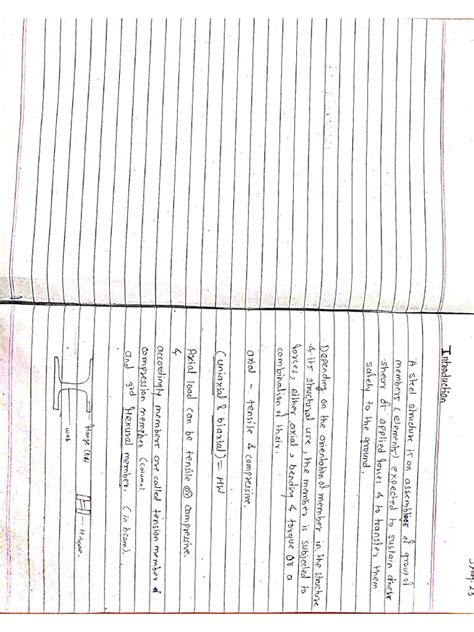 Introduction
A steel structure is an assemblage of group of
members (elements) expected to sustain their
share of applied forces & to transfer them
safely to the ground.
Depending on the orientation of member in the structure
& its structural use, the member is subjected to
forces, either axial, bending & torque or a
combination of their.
axial - tensile & compressive.
(uniaxial & biaxial) = HW
Axial load can be tensile or compressive.
&
accordingly member are called tension member &
compression member (column)
and 3rd flexural member. (in beam).
flange
web